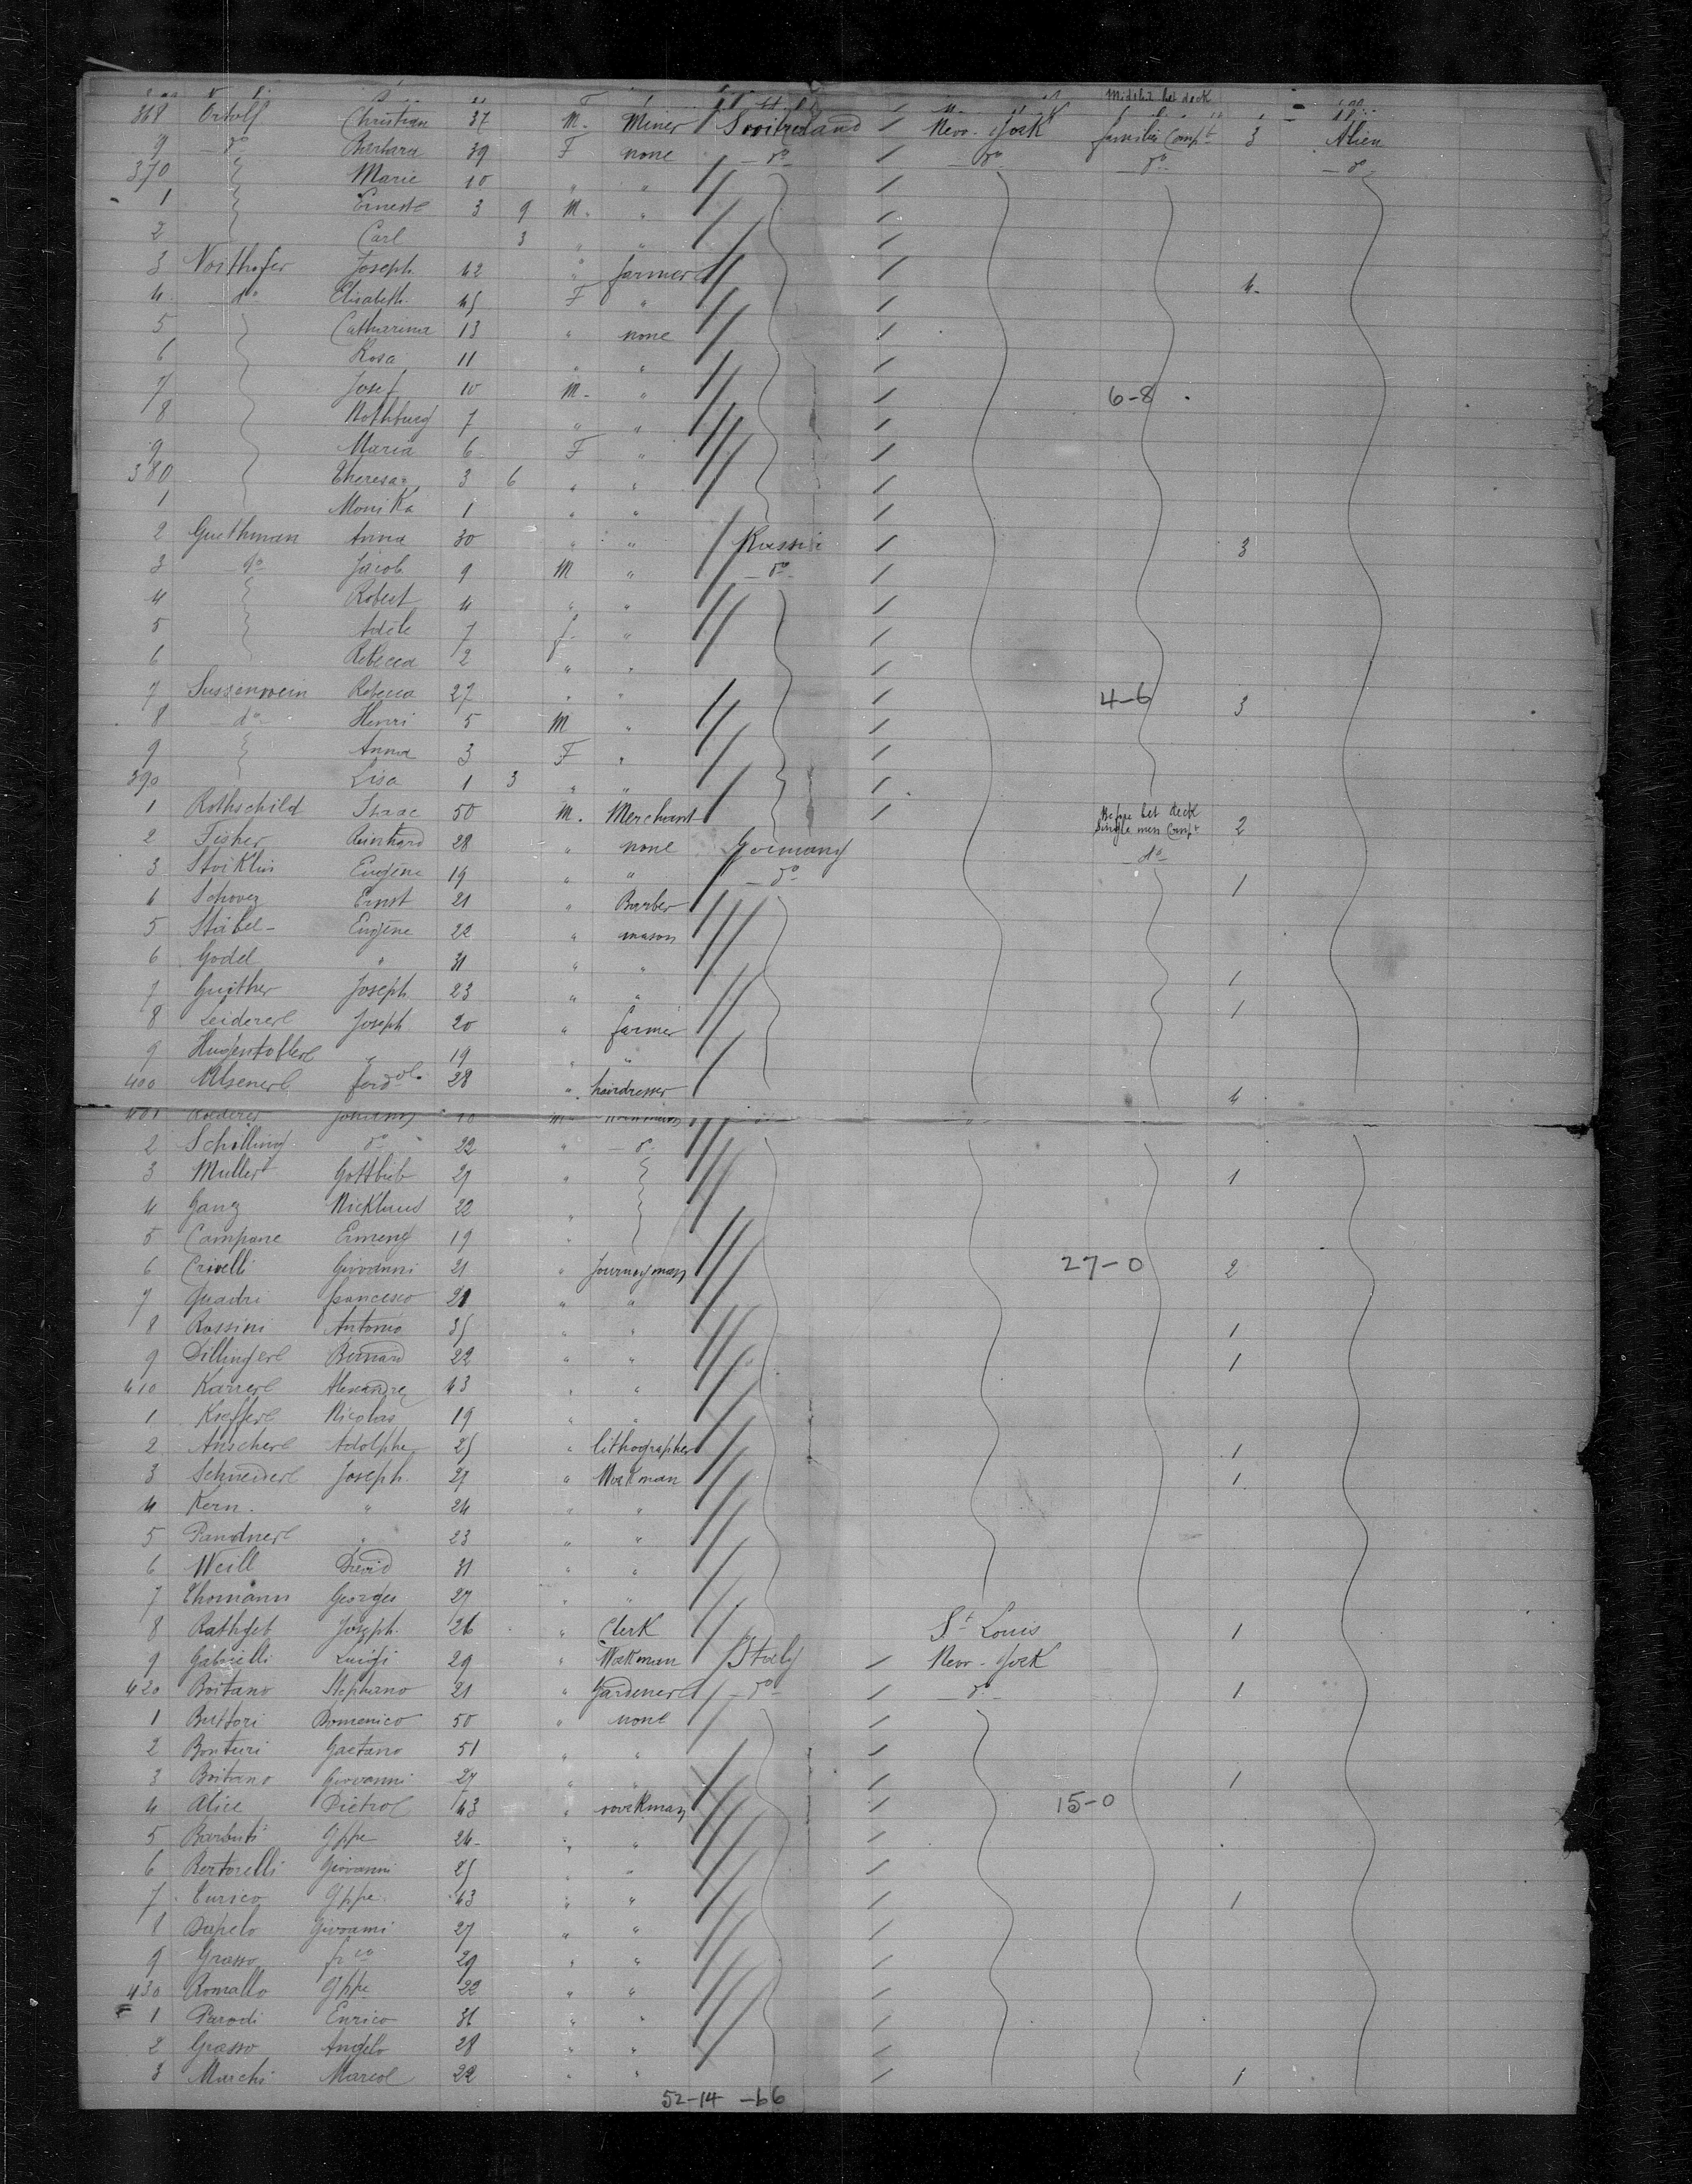 Middle bet deck
368 Ortolf Christian 37 M. Miner Switzerland / New-York families Compt 3 Alien
9 _do_ Barbara 39 F none _do_ / _do_ _do_ _do_
370 Marie 10 " " /
1 Ernest 3 9 M. " /
2 Carl 3 " " /
3 Nosthofer Joseph 42 " farmer / 4.
4 _do_ Elisabeth 45 F " /
5 Catharina 13 " none /
6 Rosa 11 " " /
7 Josef 10 M. " / 6-8
8 Nothburg 7 " " /
9 Maria 6 F " /
380 Theresa 3 6 " " /
1 Monika 1 " " /
2 Guthman Anna 30 " " Russia / 3
3 _do_ Jacob 9 M " _do_ /
4 Robert 4 " " /
5 Adele 7 f. " /
6 Rebecca 2 " " /
7 Sussenwein Rebecca 27 " " / 4-6 3
8 _do_ Henri 5 M " /
9 Anna 3 F " /
390 Lisa 1 3 " " /
1 Rothschild Isaac 50 M. Merchant / Before bet deck Single men Compt 2
2 Fisher Reinhard 28 " none Germany _do_
3 Stoiklin Eugène 19 " " _do_ 1
4 Ernst 21 " Barber
5 Stabel Eugène 22 " mason
6 Godel " 31 " "
7 Guither Joseph 23 " " 1
8 Leiderer Joseph 20 " farmer 1
9 Hugentobler " 19 " "
400 28 " hairdresser 4
401 Roederer
2 Schilling do 22 " _do_
3 Muller Gottlieb 27 " 1
4 Ganz Nicklaus 22 "
5 Campane 19 "
6 Crivelli Giovanni 21 " Journeyman 27-0 2
7 Quadri francesco 21 " "
8 Rossini Antonio 35 " " 1
9 Dillinger Bernard 22 " " 1
410 Karrer Alexandre 43 " "
1 Kieffer Nicolas 19 " "
2 Anscher Adolphe 25 " lithographer 1
3 Schneider Joseph 27 " Workman 1
4 Kern " 24 " "
5 Pandner " 23 " "
6 Weill David 31 " "
7 Thomann Georges 27 " "
8 Rathgeb Joseph 26 " Clerk St Louis 1
9 Gabrielli Luigi 29 " Workman Italy / New-York
420 Boitano Stephano 21 " Gardener _do_ / _do_ 1
1 Buttori Domenico 50 " none /
2 Bonturi Gaetano 51 " " /
3 Boitano Giovanni 27 " " / 1
4 Alice Pietro 43 " workman / 15-0
5 Barbuti Gppe 24 " " /
6 Bertorelli Giovanni 25 " " /
7 Enrico Gppe 43 " " / 1
8 Dapelo Giovanni 27 " " /
9 Grasso fr co 29 " " /
430 Romallo Gppe 22 " " /
1 Parodi Enrico 36 " " /
2 Grasso Angelo 28 " " /
3 Marchi Marco 22 " " / 1
52-14-66